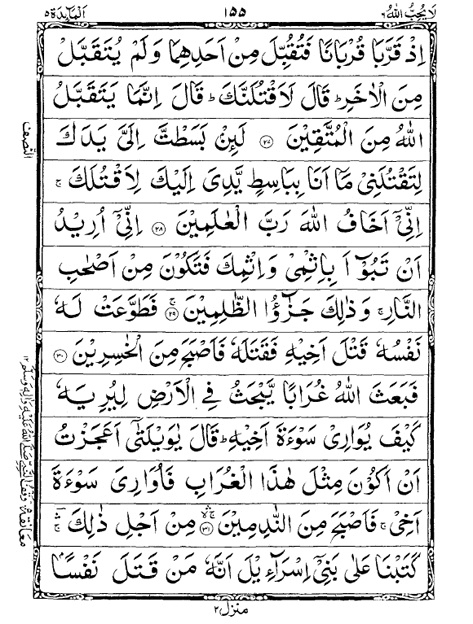 لَا يُحِبُّ اللّٰهُ ٦ ١٥٥ اَلْمَآئِدَة ٥
اِذْ قَرَّبَا قُرْبَانًا فَتُقُبِّلَ مِنْ اَحَدِهِمَا وَلَمْ يُتَقَبَّلْ
مِنَ الْاٰخَرِ ؕ قَالَ لَاَقْتُلَنَّكَ ؕ قَالَ اِنَّمَا يَتَقَبَّلُ
اللّٰهُ مِنَ الْمُتَّقِيْنَ ﴿٢٧﴾ لَئِنْۢ بَسَطْتَّ اِلَيَّ يَدَكَ
لِتَقْتُلَنِيْ مَاۤ اَنَا بِبَاسِطٍ يَّدِيَ اِلَيْكَ لِاَقْتُلَكَ ۚ
اِنِّيْۤ اَخَافُ اللّٰهَ رَبَّ الْعٰلَمِيْنَ ﴿٢٨﴾ اِنِّيْۤ اُرِيْدُ
اَنْ تَبُوْٓاَ بِاِثْمِيْ وَاِثْمِكَ فَتَكُوْنَ مِنْ اَصْحٰبِ
النَّارِ ۚ وَذٰلِكَ جَزٰٓؤُا الظّٰلِمِيْنَ ﴿٢٩﴾ ۚ فَطَوَّعَتْ لَهٗ
نَفْسُهٗ قَتْلَ اَخِيْهِ فَقَتَلَهٗ فَاَصْبَحَ مِنَ الْخٰسِرِيْنَ ﴿٣٠﴾
فَبَعَثَ اللّٰهُ غُرَابًا يَّبْحَثُ فِي الْاَرْضِ لِيُرِيَهٗ
كَيْفَ يُوَارِيْ سَوْءَةَ اَخِيْهِ ؕ قَالَ يٰوَيْلَتٰۤى اَعَجَزْتُ
اَنْ اَكُوْنَ مِثْلَ هٰذَا الْغُرَابِ فَاُوَارِيَ سَوْءَةَ
اَخِيْ ۚ فَاَصْبَحَ مِنَ النّٰدِمِيْنَ ﴿٣١﴾ مِنْ اَجْلِ ذٰلِكَ ۚ
كَتَبْنَا عَلٰى بَنِيْۤ اِسْرَآءِيْلَ اَنَّهٗ مَنْ قَتَلَ نَفْسًۢا
منزل ٢
النّصف